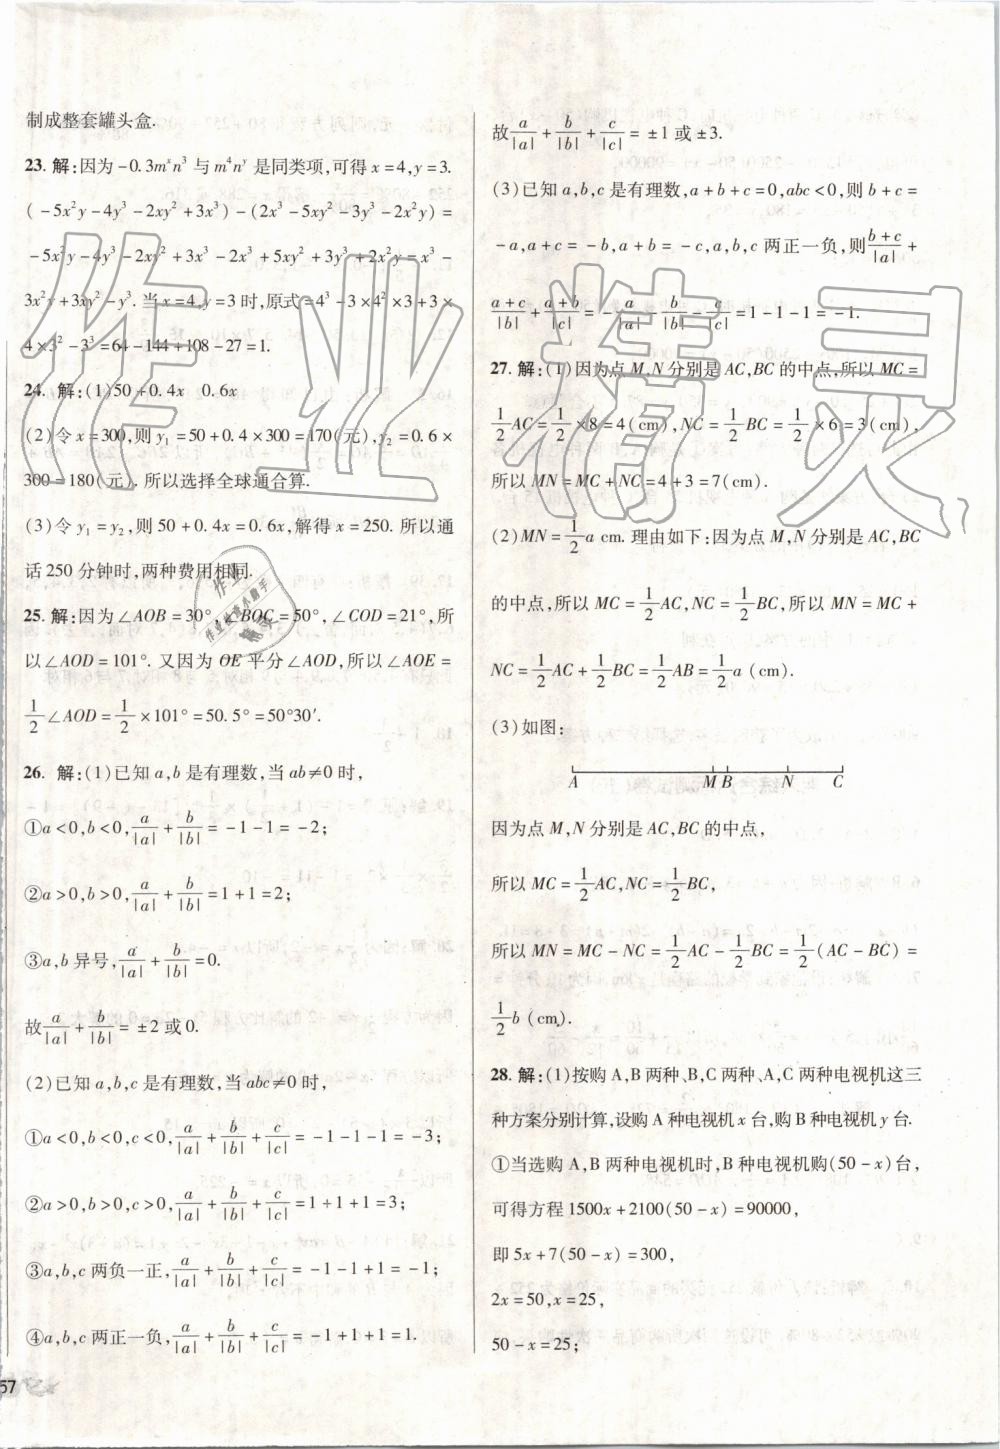 制成整套罐头盒.
23. 解:因为 -0.3mˣn³ 与 m⁴nʸ 是同类项,可得 x=4,y=3.
(-5x²y-4y³-2xy²+3x³)-(2x³-5xy²-3y³-2x²y)=
-5x²y-4y³-2xy²+3x³-2x³+5xy²+3y³+2x²y=x³-
3x²y+3xy²-y³. 当 x=4,y=3 时,原式=4³-3×4²×3+3×
4×3²-3³=64-144+108-27=1.
24. 解:(1)50+0.4x 0.6x
(2)令 x=300,则 y₁=50+0.4×300=170(元),y₂=0.6×
300=180(元).所以选择全球通合算.
(3)令 y₁=y₂,则 50+0.4x=0.6x,解得 x=250. 所以通
话 250 分钟时,两种费用相同.
25. 解:因为∠AOB=30°,∠BOC=50°,∠COD=21°,所
以∠AOD=101°. 又因为 OE 平分∠AOD,所以∠AOE=
1/2∠AOD=1/2×101°=50.5°=50°30′.
26. 解:(1)已知 a,b 是有理数,当 ab≠0 时,
①a<0,b<0,a/|a|+b/|b|=-1-1=-2;
②a>0,b>0,a/|a|+b/|b|=1+1=2;
③a,b 异号,a/|a|+b/|b|=0.
故a/|a|+b/|b|=±2 或 0.
(2)已知 a,b,c 是有理数,当 abc≠0 时,
①a<0,b<0,c<0,a/|a|+b/|b|+c/|c|=-1-1-1=-3;
②a>0,b>0,c>0,a/|a|+b/|b|+c/|c|=1+1+1=3;
③a,b,c 两负一正,a/|a|+b/|b|+c/|c|=-1-1+1=-1;
④a,b,c 两正一负,a/|a|+b/|b|+c/|c|=-1+1+1=1.
57
故a/|a|+b/|b|+c/|c|=±1 或±3.
(3)已知 a,b,c 是有理数,a+b+c=0,abc<0,则 b+c=
-a,a+c=-b,a+b=-c,a,b,c 两正一负,则(b+c)/|a|+
(a+c)/|b|+(a+b)/|c|=-a/|a|-b/|b|-c/|c|=1-1-1=-1.
27. 解:(1)因为点 M,N 分别是 AC,BC 的中点,所以 MC=
1/2AC=1/2×8=4(cm),NC=1/2BC=1/2×6=3(cm),
所以 MN=MC+NC=4+3=7(cm).
(2)MN=1/2a cm. 理由如下:因为点 M,N 分别是 AC,BC
的中点,所以 MC=1/2AC,NC=1/2BC,所以 MN=MC+
NC=1/2AC+1/2BC=1/2AB=1/2a(cm).
(3)如图:
A M B N C
因为点 M,N 分别是 AC,BC 的中点,
所以 MC=1/2AC,NC=1/2BC,
所以 MN=MC-NC=1/2AC-1/2BC=1/2(AC-BC)=
1/2b(cm).
28. 解:(1)按购 A,B 两种、B,C 两种、A,C 两种电视机这三
种方案分别计算,设购 A 种电视机 x 台,购 B 种电视机 y 台.
①当选购 A,B 两种电视机时,B 种电视机购(50-x)台,
可得方程 1500x+2100(50-x)=90000,
即 5x+7(50-x)=300,
2x=50,x=25,
50-x=25;
作业精灵